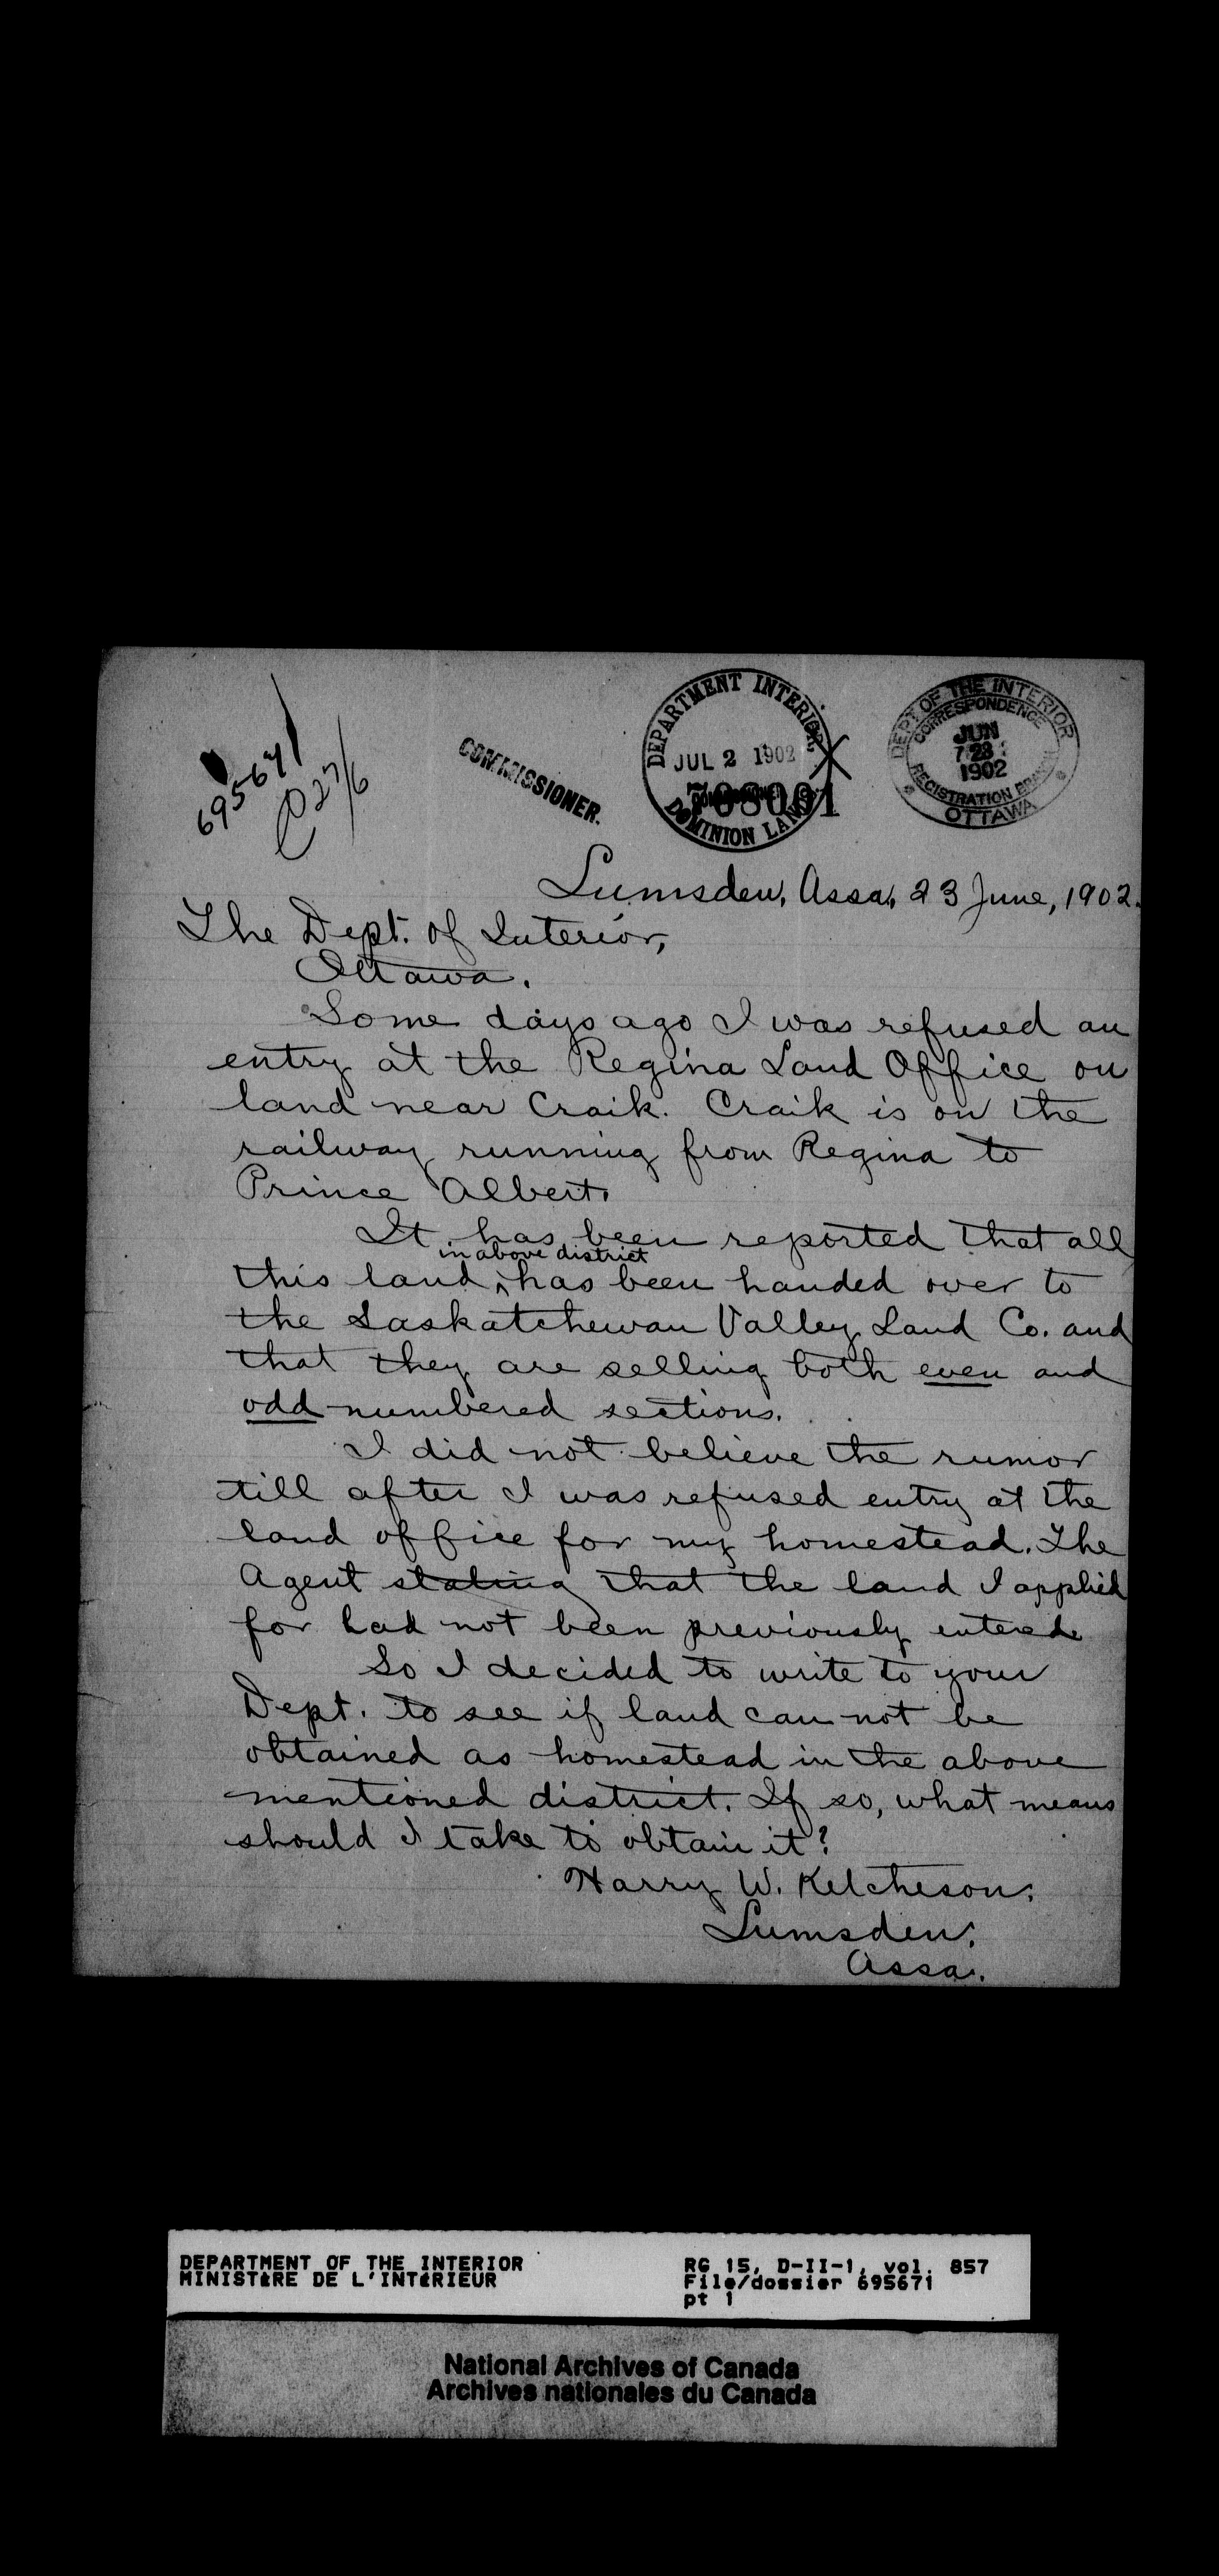 695671
C 27/6
COMMISSIONER.
DEPARTMENT INTERIOR,
JUL 2 1902
708091
DOMINION LANDS
DEPT OF THE INTERIOR
CORRESPONDENCE
JUN
28
1902
REGISTRATION BRANCH
OTTAWA
Lumsden, Assa, 23 June, 1902.
The Dept. of Interior,
Ottawa.
Some days ago I was refused an
entry at the Regina Land Office on
land near Craik. Craik is on the
railway running from Regina to
Prince Albert.
It has been reported that all
in above district
this land ^ has been handed over to
the Saskatchewan Valley Land Co. and
that they are selling both even and
odd numbered sections.
I did not believe the rumor
till after I was refused entry at the
land office for my homestead. The
Agent stating that the land I applied
for had not been previously entered.
So I decided to write to your
Dept. to see if land can not be
obtained as homestead in the above
mentioned district. If so, what means
should I take to obtain it?
Harry W. Ketcheson,
Lumsden,
Assa.
DEPARTMENT OF THE INTERIOR
MINISTÈRE DE L'INTÉRIEUR
RG 15, D-II-1, vol. 857
File/dossier 695671
pt 1
National Archives of Canada
Archives nationales du Canada